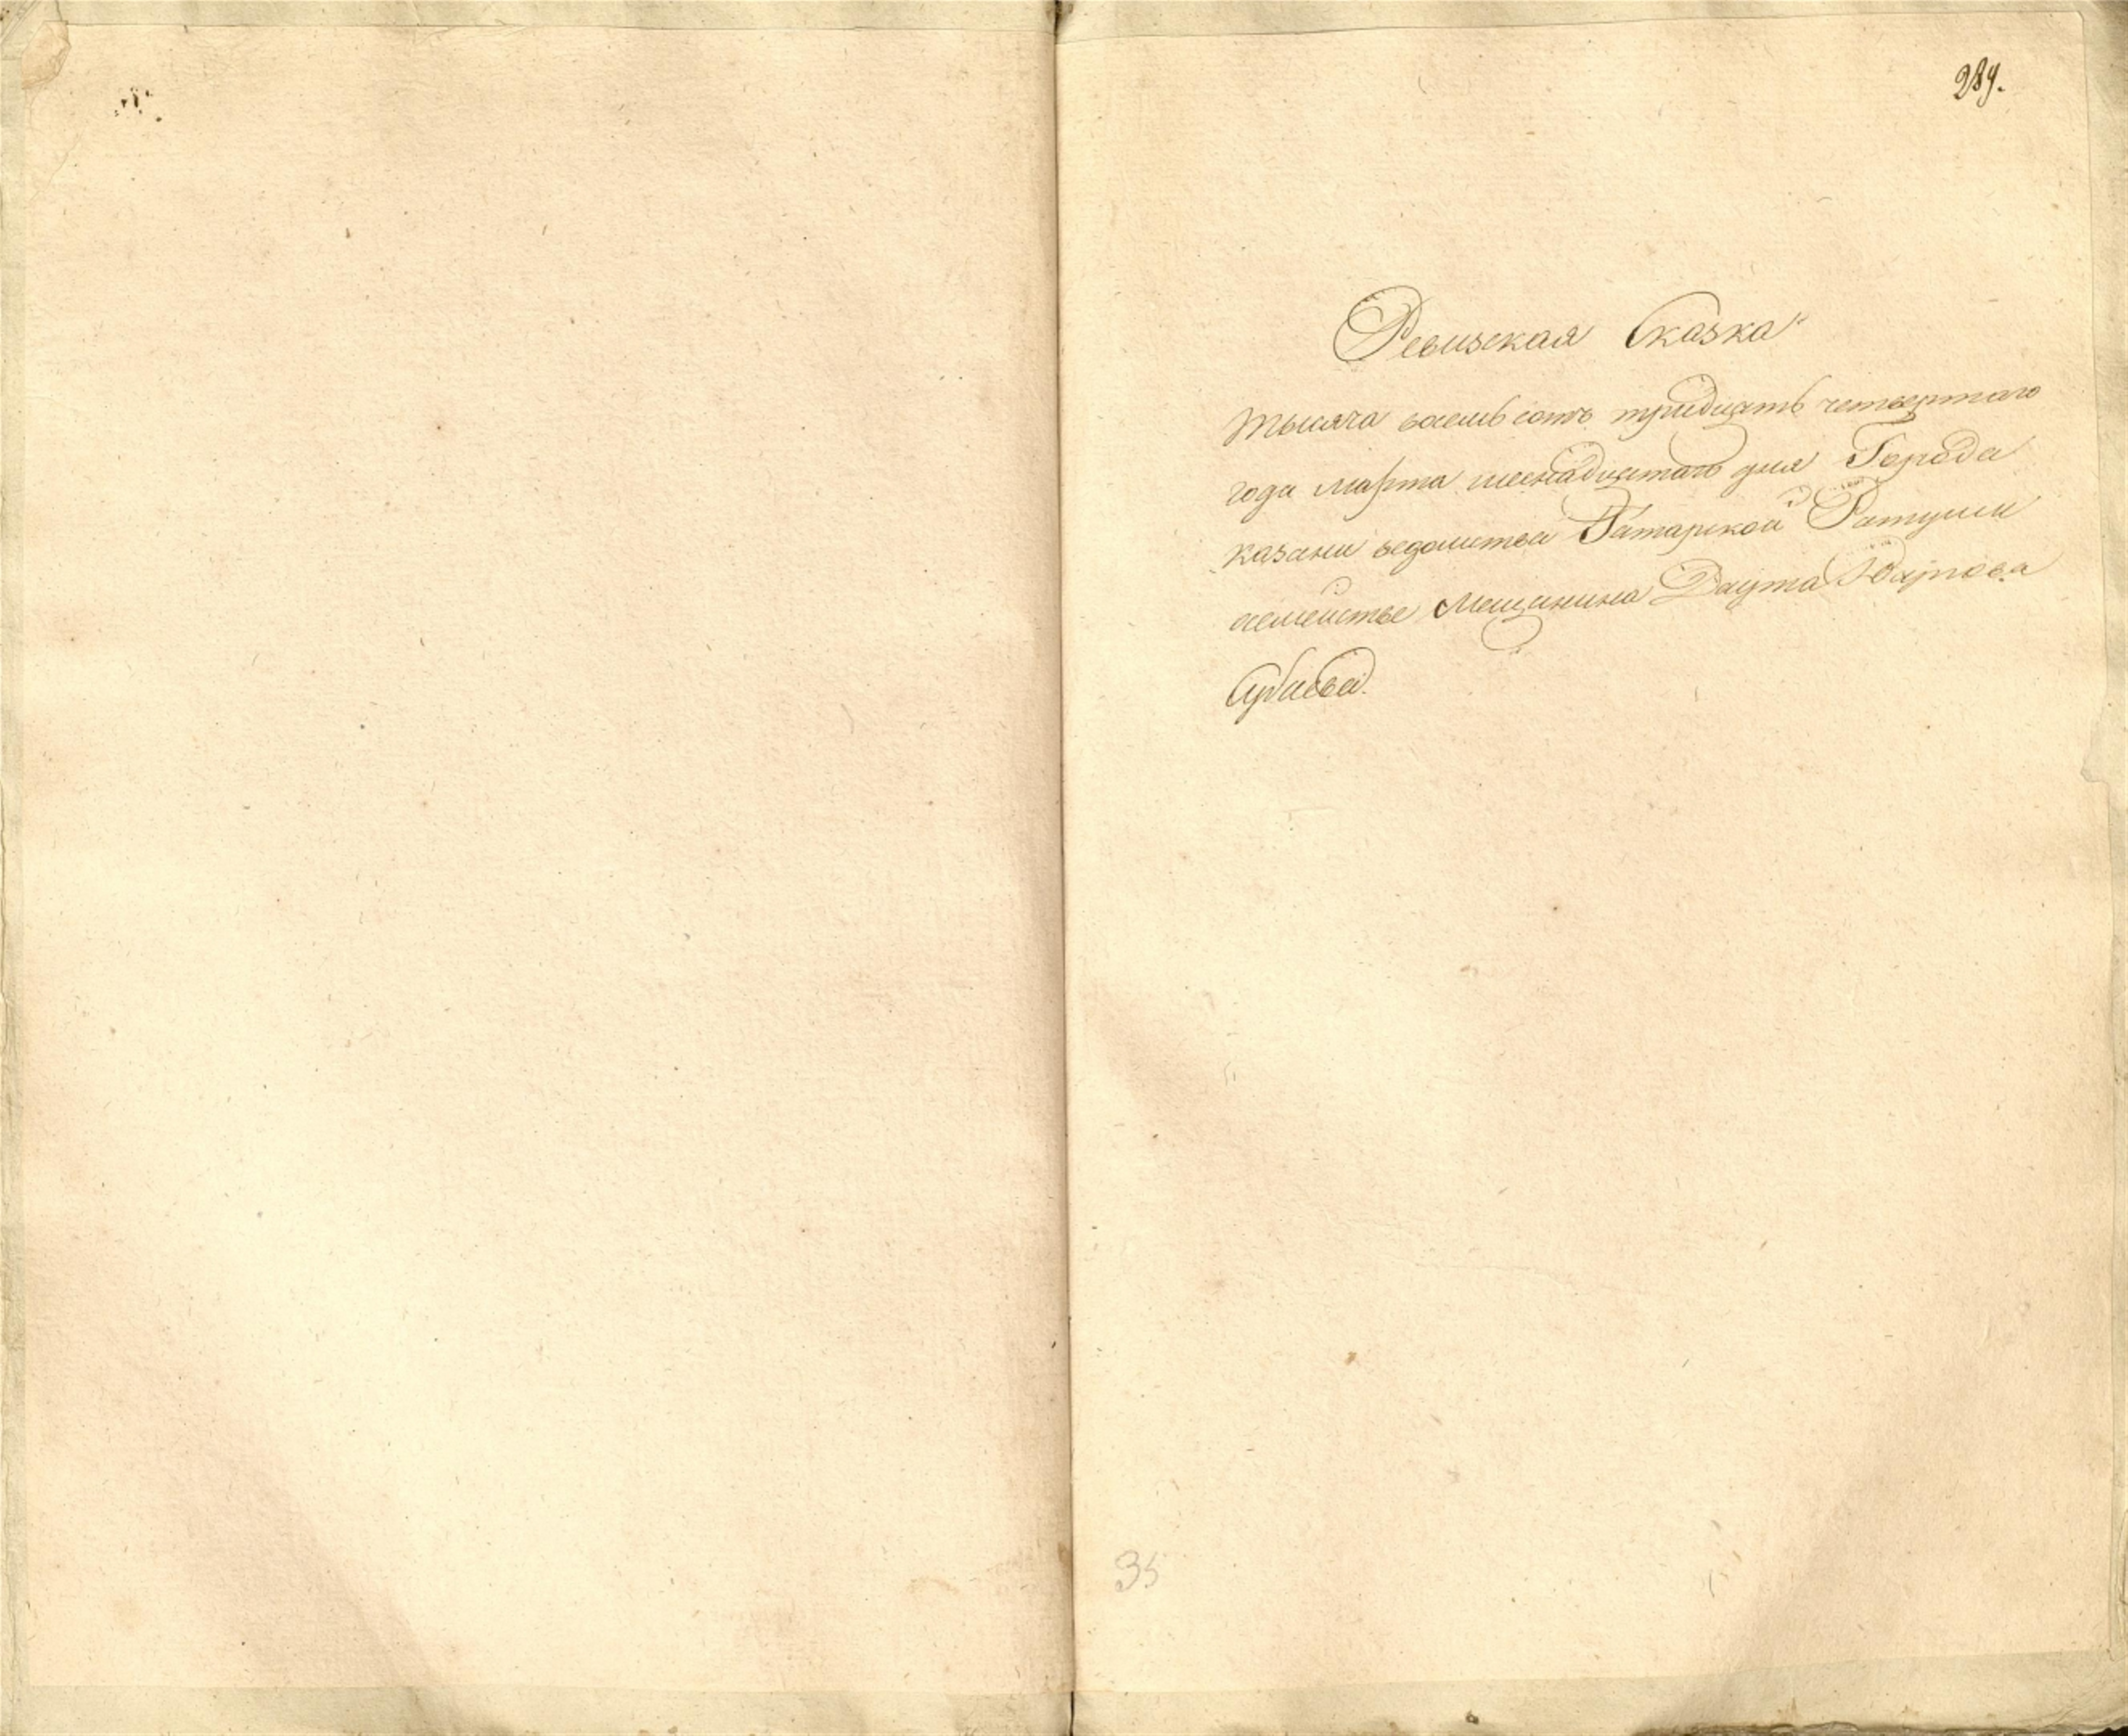 289.
Ревизская Сказка
тысяча восемь сотъ тридцать четвертаго
года марта шеснадцатаго дня Города
казани ведомства Татарской Ратуши
осемействе Мещанина Даута
35